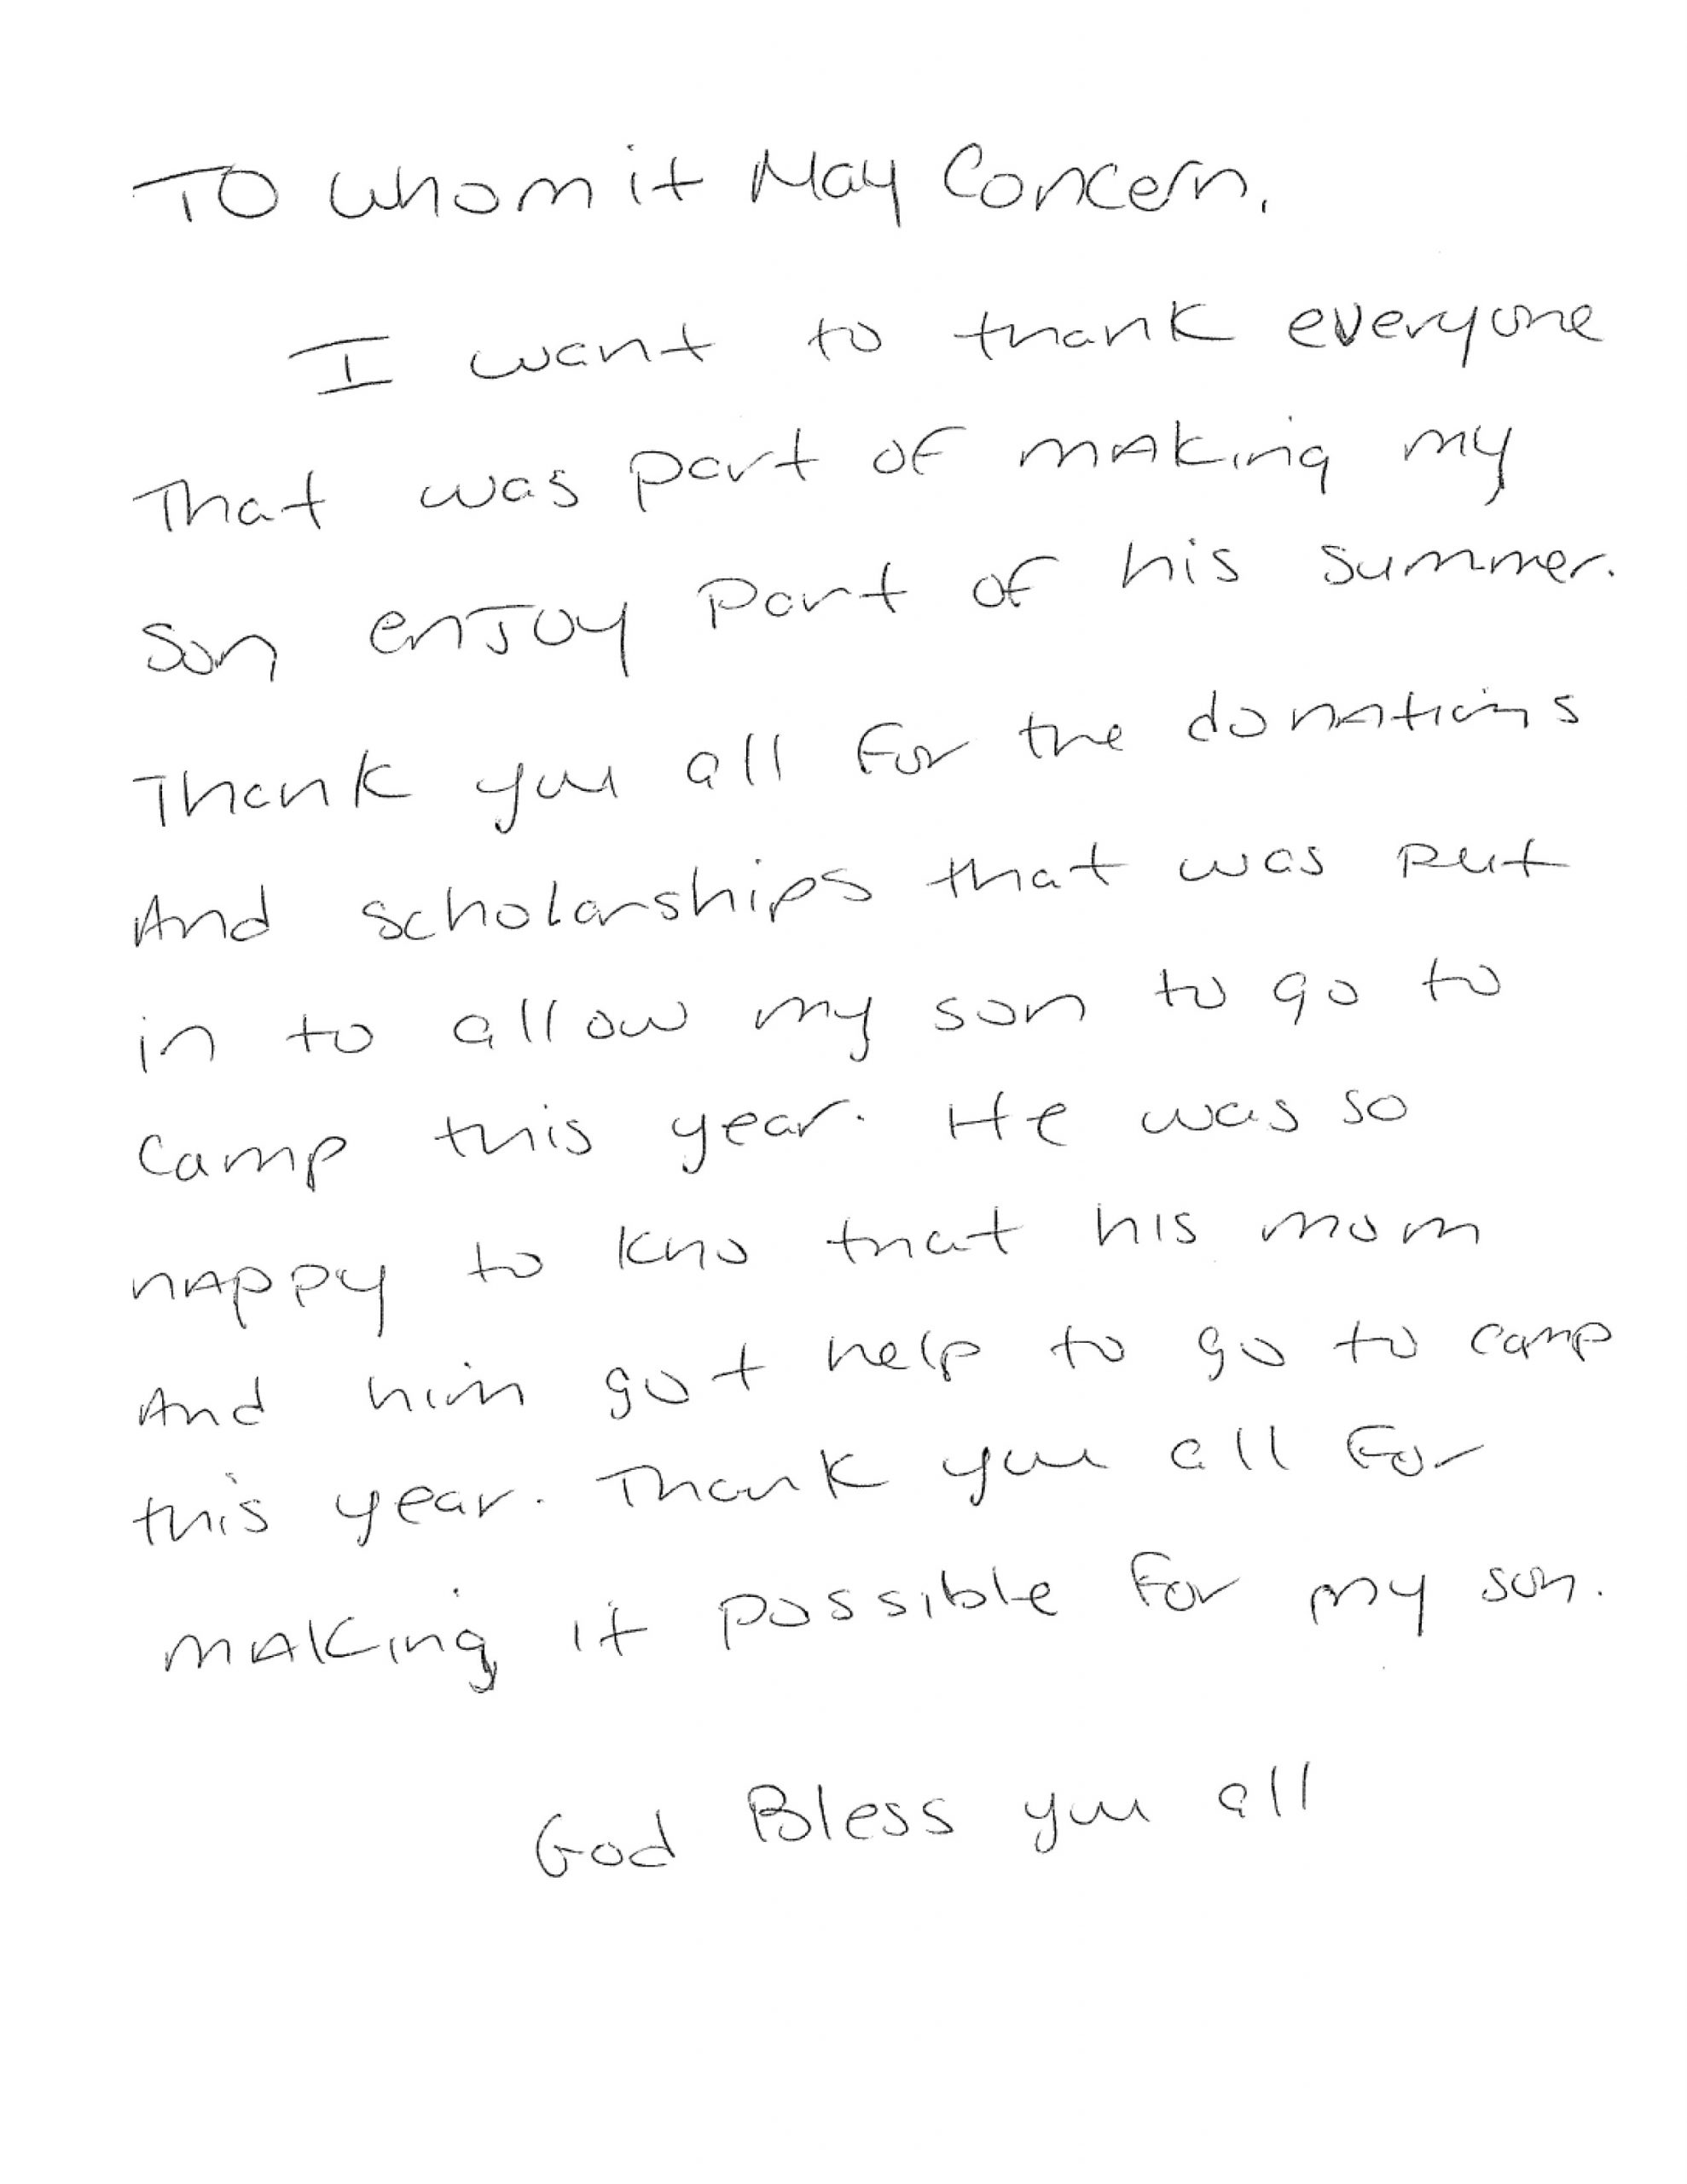 To whom it May Concern,
I want to thank everyone
That was part of making my
son enjoy part of his summer.
Thank you all for the donations
And scholarships that was put
in to allow my son to go to
camp this year. He was so
happy to kno that his mom
And him got help to go to camp
this year. Thank you all for
making it possible for my son.
God Bless you all